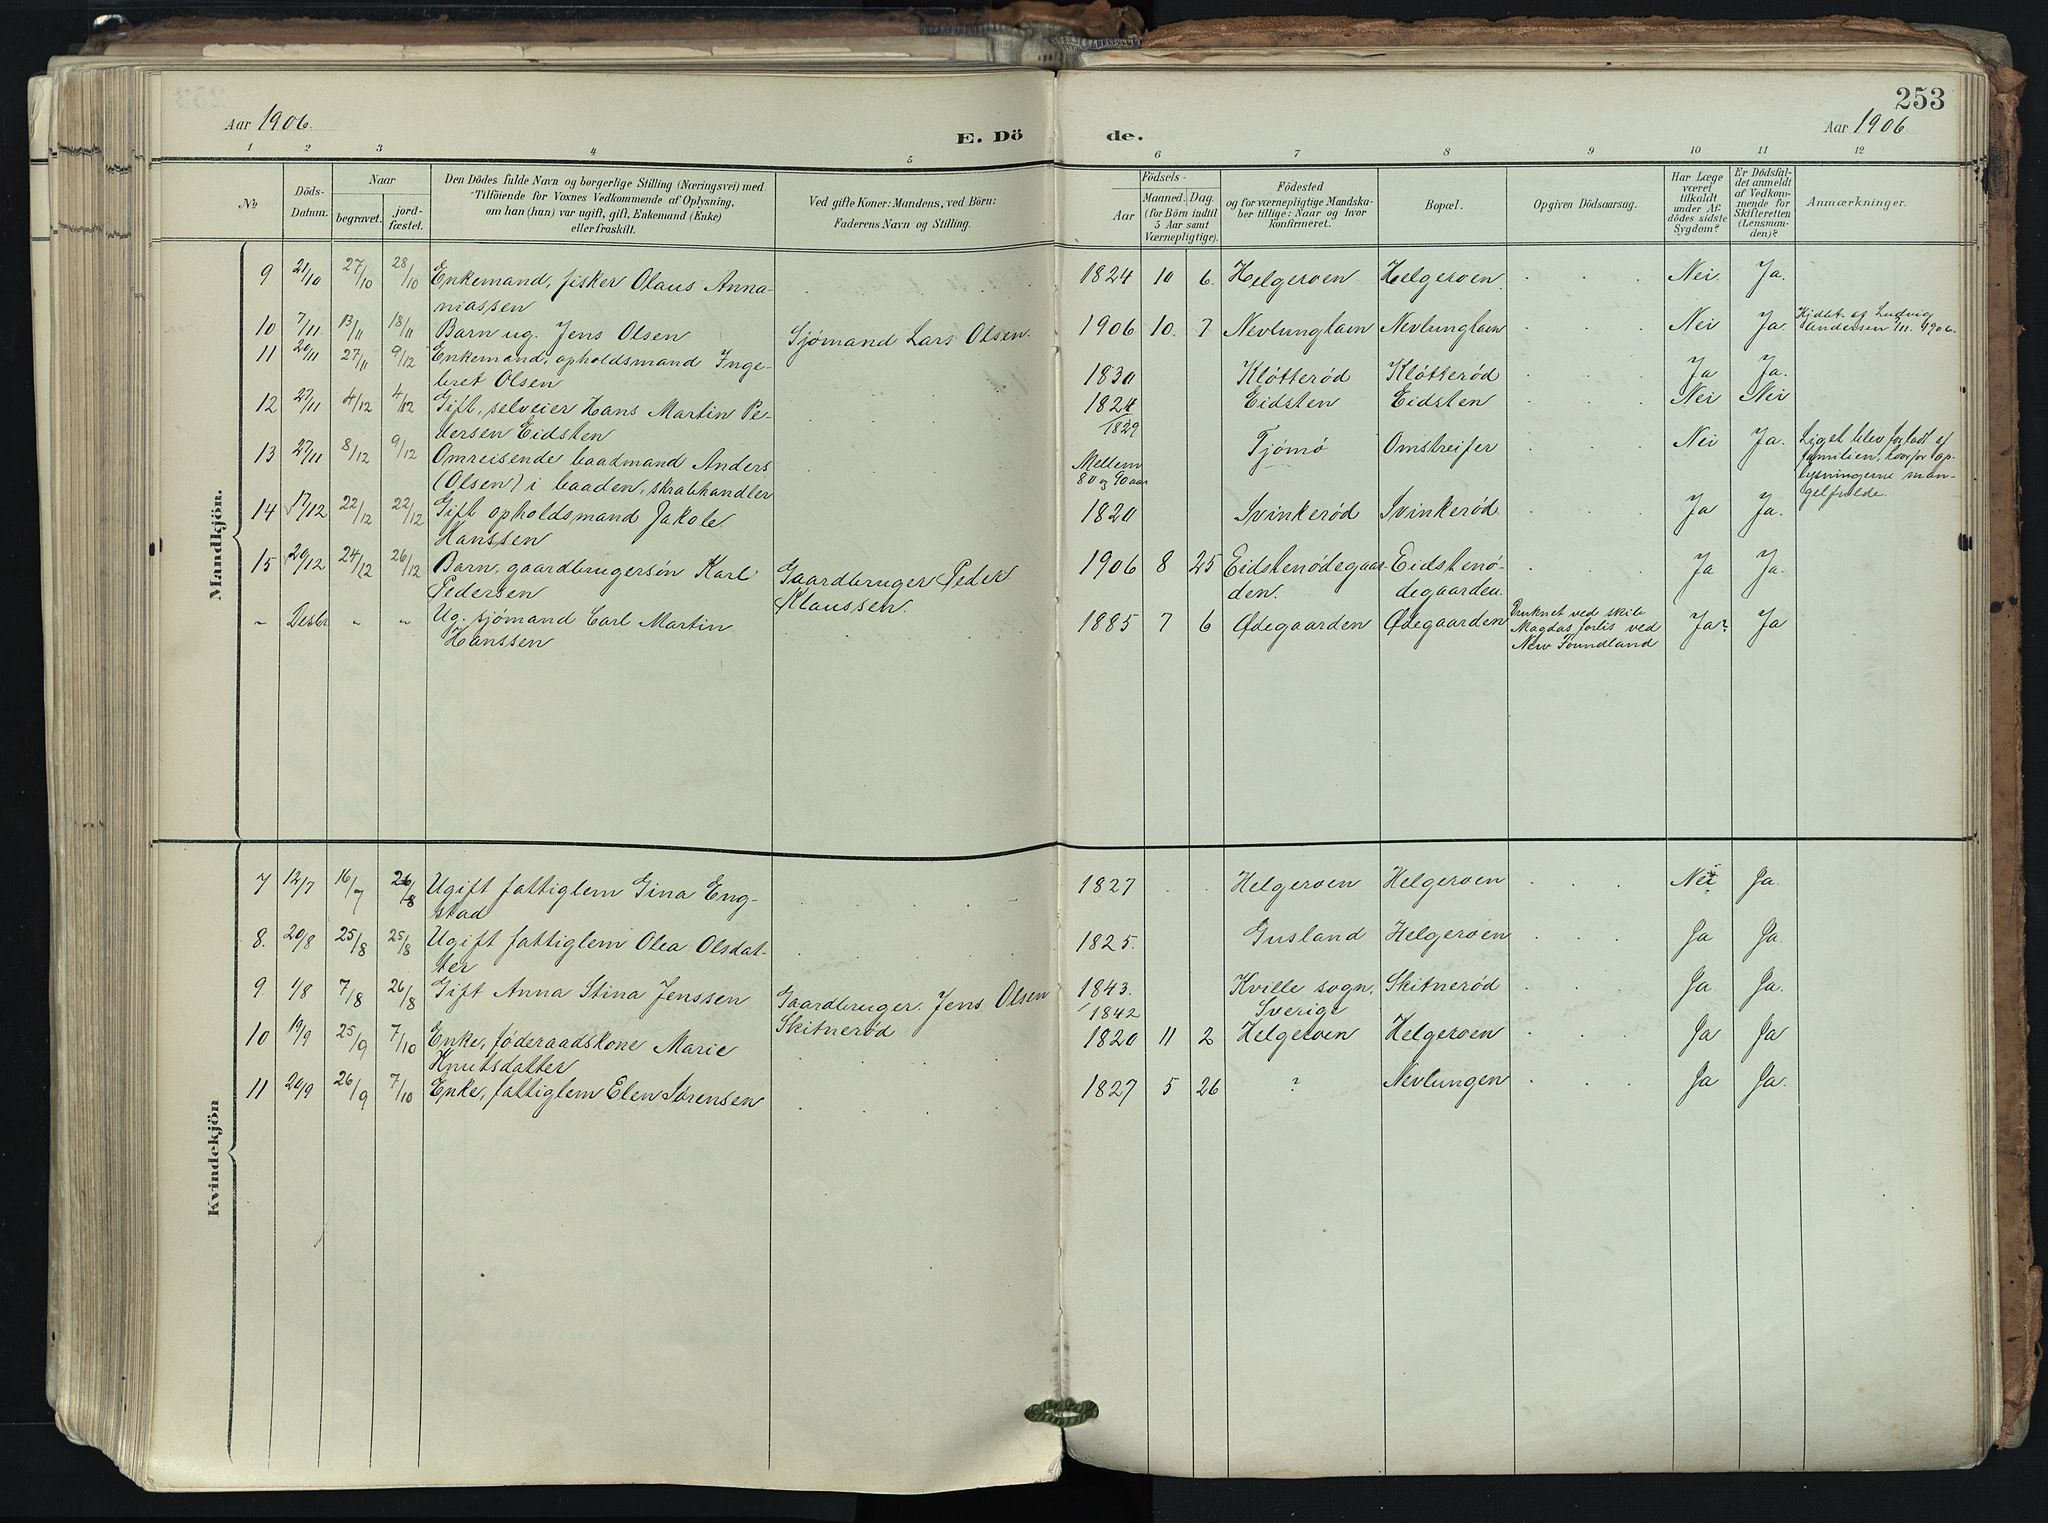 253
Aar 1906.
E. Dö
de.
Aar 1906.
1 2 3 4 5 6 7 8 9 10 11 12
No
Döds-
Datum.
Naar
begravet.
jord-
fæstet.
Den Dödes fulde Navn og borgerlige Stilling (Næringsvei) med
Tilföiende for Voxnes Vedkommende af Oplysning,
om han (hun) var ugift, gift, Enkemand (Enke)
eller fraskilt.
Ved gifte Koner: Mandens, ved Börn:
Faderens Navn og Stilling.
Födsels-
Aar
Maaned. Dag.
(for Börn indtil
5 Aar samt
Værnepligtige).
Födested
og for værnepligtige Mandska-
ber tillige: Naar og hvor
konfirmeret.
Bopæl.
Opgiven Dödsaarsag.
Har Læge
været
tilkaldt
under Af-
dödes sidste
Sygdom?
Er Dödsfal-
det anmeldt
af Vedkom-
mende for
Skifteretten
(Lensman-
den)?
Anmærkninger.
Mandkjön.
9 21/10 27/10 28/10 Enkemand, fisker Olaus Anna- 1824 10 6. Helgeroen Helgeroen. Nei Ja.
niassen
10 7/11 13/11 18/11 Barn ug. Jens Olsen Sjømand Lars Olsen. 1906 10 7 Nevlunghavn Nevlunghavn Nei Ja. Hjdbt. af Ludvig
Andersen /11 1906.
11 20/11 27/11 9/12 Enkemand, opholdsmand Inge- 1830 Kløtterød Kløtterød Ja Ja.
bret Olsen
12 27/11 4/12 4/12 Gift, selveier Hans Martin Pe- 1824 Eidsten Eidsten Nei Nei
dersen Eidsten 1829
13 27/11 8/12 9/12 Omreisende baadmand Anders Mellem Tjømø Omstreifer Nei Ja. Liget blev forladt af
(Olsen) i baaden, skrabhandler 80 og 90 aar familien, hvorfor op-
lysningerne man-
gelfulde.
14 17/12 22/12 22/12 Gift opholdsmand Jakob 1820 Svinkerød Svinkerød Ja Ja.
Hanssen
15 20/12 24/12 26/12 Barn, gaardbrugersøn Karl Gaardbruger Peder 1906 8 25 Eidstenødegaar- Eidstenø- Ja Ja.
Pedersen Klaussen. den. degaarden.
" Desbr " " Ug. sjømand Carl Martin 1885 7 6 Ødegaarden Ødegaarden Druknet ved skib Ja? Ja
Hanssen Magdas forlis ved
New Foundland
Kvindekjön
7 12/7 16/7 26/8 Ugift fattiglem Gina Eng- 1827 Helgeroen Helgeroen Nei Ja.
stad
8. 20/8 25/8 25/8 Ugift fattiglem Olea Olsdat- 1825. Gusland Helgeroen Ja Ja.
ter
9. 1/8 7/8 26/8 Gift Anna Stina Jenssen Gaardbruger Jens Olsen 1843. Kville sogn, Skitnerød Ja Ja.
Skitnerød 1842 Sverige
10 19/9 25/9 7/10 Enke, føderaadskone Marie 1820 11 2 Helgeroen Helgeroen Ja Ja
Knutsdatter
11 20/9 26/9 7/10 Enke, fattiglem Elen Sørensen 1827 5 26 ? Nevlungen Ja Ja.